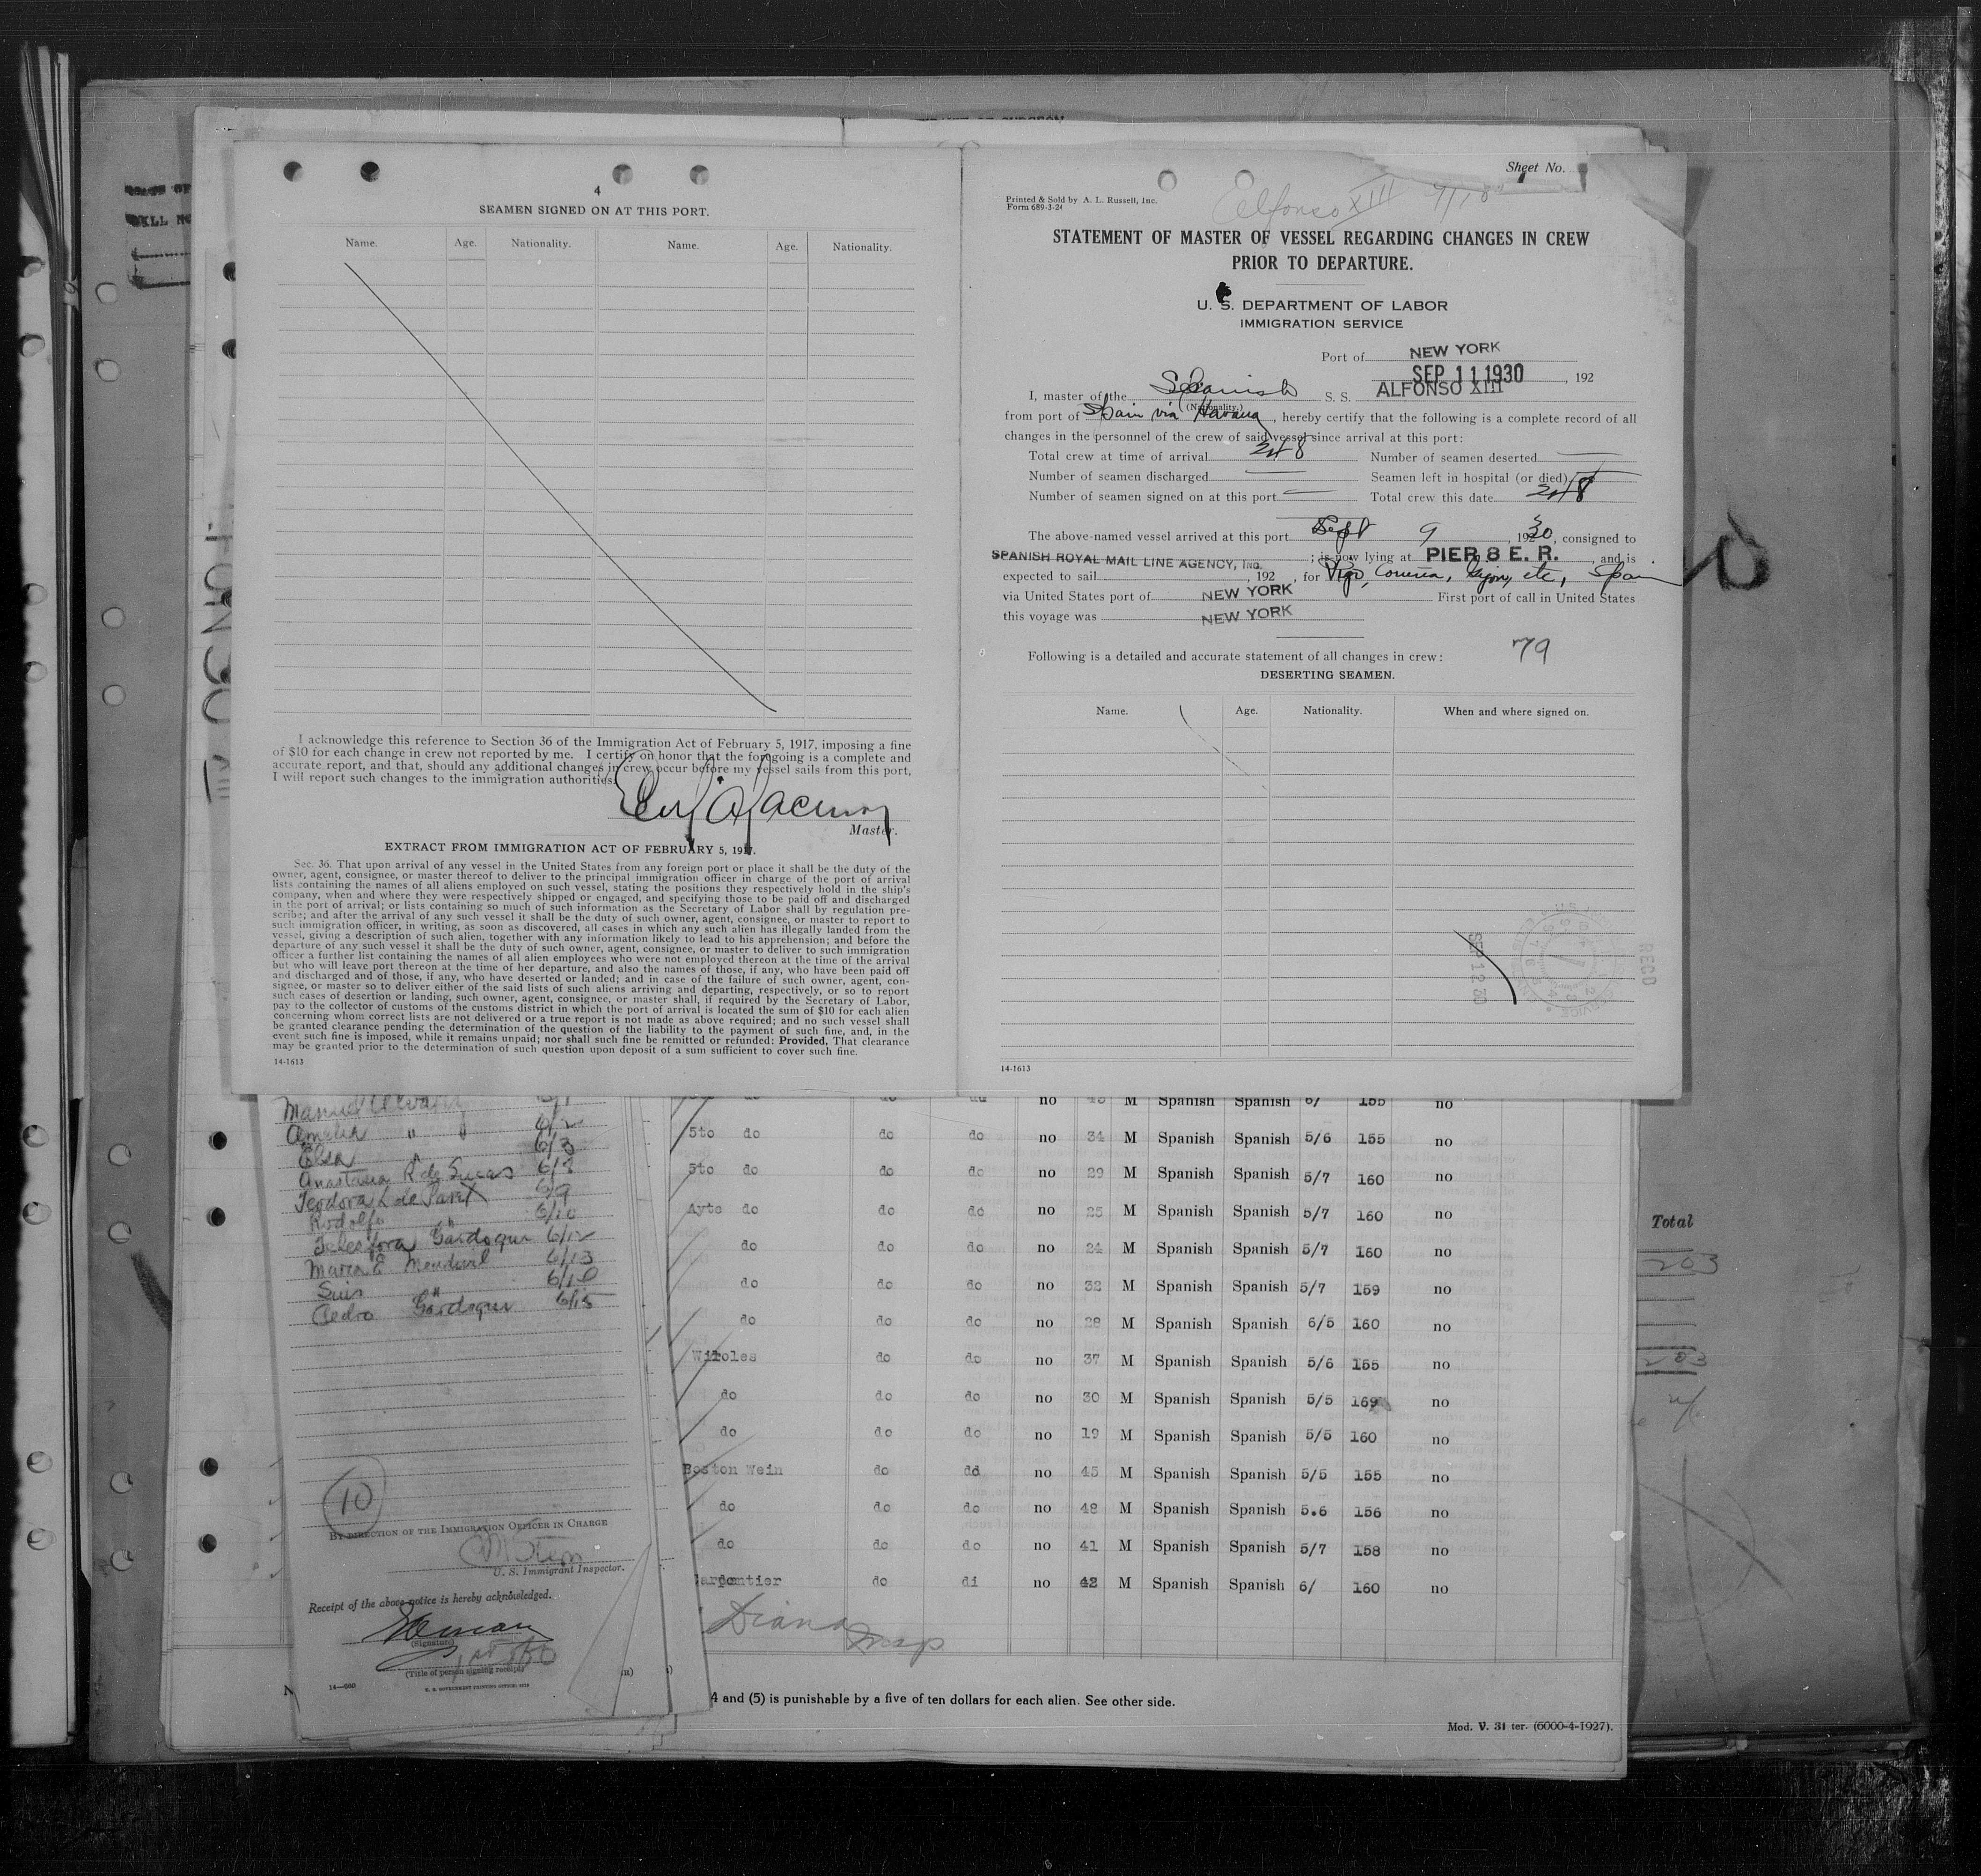 4
SEAMEN SIGNED ON AT THIS PORT.
Name. Age. Nationality. Name. Age. Nationality.
I acknowledge this reference to Section 36 of the Immigration Act of February 5, 1917, imposing a fine
of $10 for each change in crew not reported by me. I certify on honor that the foregoing is a complete and
accurate report, and that, should any additional changes in crew occur before my vessel sails from this port,
I will report such changes to the immigration authorities.
Master.
EXTRACT FROM IMMIGRATION ACT OF FEBRUARY 5, 1917.
Sec. 36. That upon arrival of any vessel in the United States from any foreign port or place it shall be the duty of the
owner, agent, consignee, or master thereof to deliver to the principal immigration officer in charge of the port of arrival
lists containing the names of all aliens employed on such vessel, stating the positions they respectively hold in the ship's
company, when and where they were respectively shipped or engaged, and specifying those to be paid off and discharged
in the port of arrival; or lists containing so much of such information as the Secretary of Labor shall by regulation pre-
scribe; and after the arrival of any such vessel it shall be the duty of such owner, agent, consignee, or master to report to
such immigration officer, in writing, as soon as discovered, all cases in which any such alien has illegally landed from the
vessel, giving a description of such alien, together with any information likely to lead to his apprehension; and before the
departure of any such vessel it shall be the duty of such owner, agent, consignee, or master to deliver to such immigration
officer a further list containing the names of all alien employees who were not employed thereon at the time of the arrival
but who will leave port thereon at the time of her departure, and also the names of those, if any, who have been paid off
and discharged and of those, if any, who have deserted or landed; and in case of the failure of such owner, agent, con-
signee, or master so to deliver either of the said lists of such aliens arriving and departing, respectively, or so to report
such cases of desertion or landing, such owner, agent, consignee, or master shall, if required by the Secretary of Labor,
pay to the collector of customs of the customs district in which the port of arrival is located the sum of $10 for each alien
concerning whom correct lists are not delivered or a true report is not made as above required; and no such vessel shall
be granted clearance pending the determination of the question of the liability to the payment of such fine, and, in the
event such fine is imposed, while it remains unpaid; nor shall such fine be remitted or refunded: Provided, That clearance
may be granted prior to the determination of such question upon deposit of a sum sufficient to cover such fine.
14-1613
Sheet No.
Printed & Sold by A. L. Russell, Inc.
Form 689-3-24
Alfonso XIII
STATEMENT OF MASTER OF VESSEL REGARDING CHANGES IN CREW
PRIOR TO DEPARTURE.
U. S. DEPARTMENT OF LABOR
IMMIGRATION SERVICE
Port of NEW YORK
SEP 11 1930, 192
I, master of the Spanish S. S. ALFONSO XIII
(Nationality.)
from port of Spain via Havana, hereby certify that the following is a complete record of all
changes in the personnel of the crew of said vessel since arrival at this port:
Total crew at time of arrival 248 Number of seamen deserted
Number of seamen discharged Seamen left in hospital (or died)
Number of seamen signed on at this port Total crew this date 248
The above-named vessel arrived at this port Sept 9, 1930, consigned to
SPANISH ROYAL MAIL LINE AGENCY, INC. ; is now lying at PIER 8 E. R., and is
expected to sail , 192 , for Vigo, Coruña, Gijon, etc, Spain
via United States port of NEW YORK First port of call in United States
this voyage was NEW YORK
79
Following is a detailed and accurate statement of all changes in crew:
DESERTING SEAMEN.
Name. Age. Nationality. When and where signed on.
SEP 12 30
RECD
14-1613
Manuel
Amelia " " 6/2
Elsa " 6/3
Anastasia R de 6/8
Teodora L de 6/9
Rodolfo " 6/10
Telesfora Gardoqui 6/12
Maria E Mendivil 6/13
Luis " 6/14
Pedro Gardoqui 6/15
10
BY DIRECTION OF THE IMMIGRATION OFFICER IN CHARGE
U. S. Immigrant Inspector.
Receipt of the above notice is hereby acknowledged.
(Signature)
(Title of person signing receipt)
14-680
U. S. GOVERNMENT PRINTING OFFICE
no M Spanish Spanish 6/ 155 no
5to do do do no 34 M Spanish Spanish 5/6 155 no
5to do do do no 29 M Spanish Spanish 5/7 160 no
Ayte do do do no 25 M Spanish Spanish 5/7 160 no
do do do no 24 M Spanish Spanish 5/7 160 no
do do do no 32 M Spanish Spanish 5/7 159 no
do do do no 28 M Spanish Spanish 6/5 160 no
do do no 37 M Spanish Spanish 5/6 155 no
do do do no 30 M Spanish Spanish 5/5 159 no
do do do no 19 M Spanish Spanish 5/5 160 no
Boston Wein do dd no 45 M Spanish Spanish 5/5 155 no
do do do no 48 M Spanish Spanish 5.6 156 no
do do do no 41 M Spanish Spanish 5/7 158 no
do di no 42 M Spanish Spanish 6/ 160 no
Diana
4 and (5) is punishable by a five of ten dollars for each alien. See other side.
Mod. V. 31 ter. (6000-4-1927).
Total
203
203